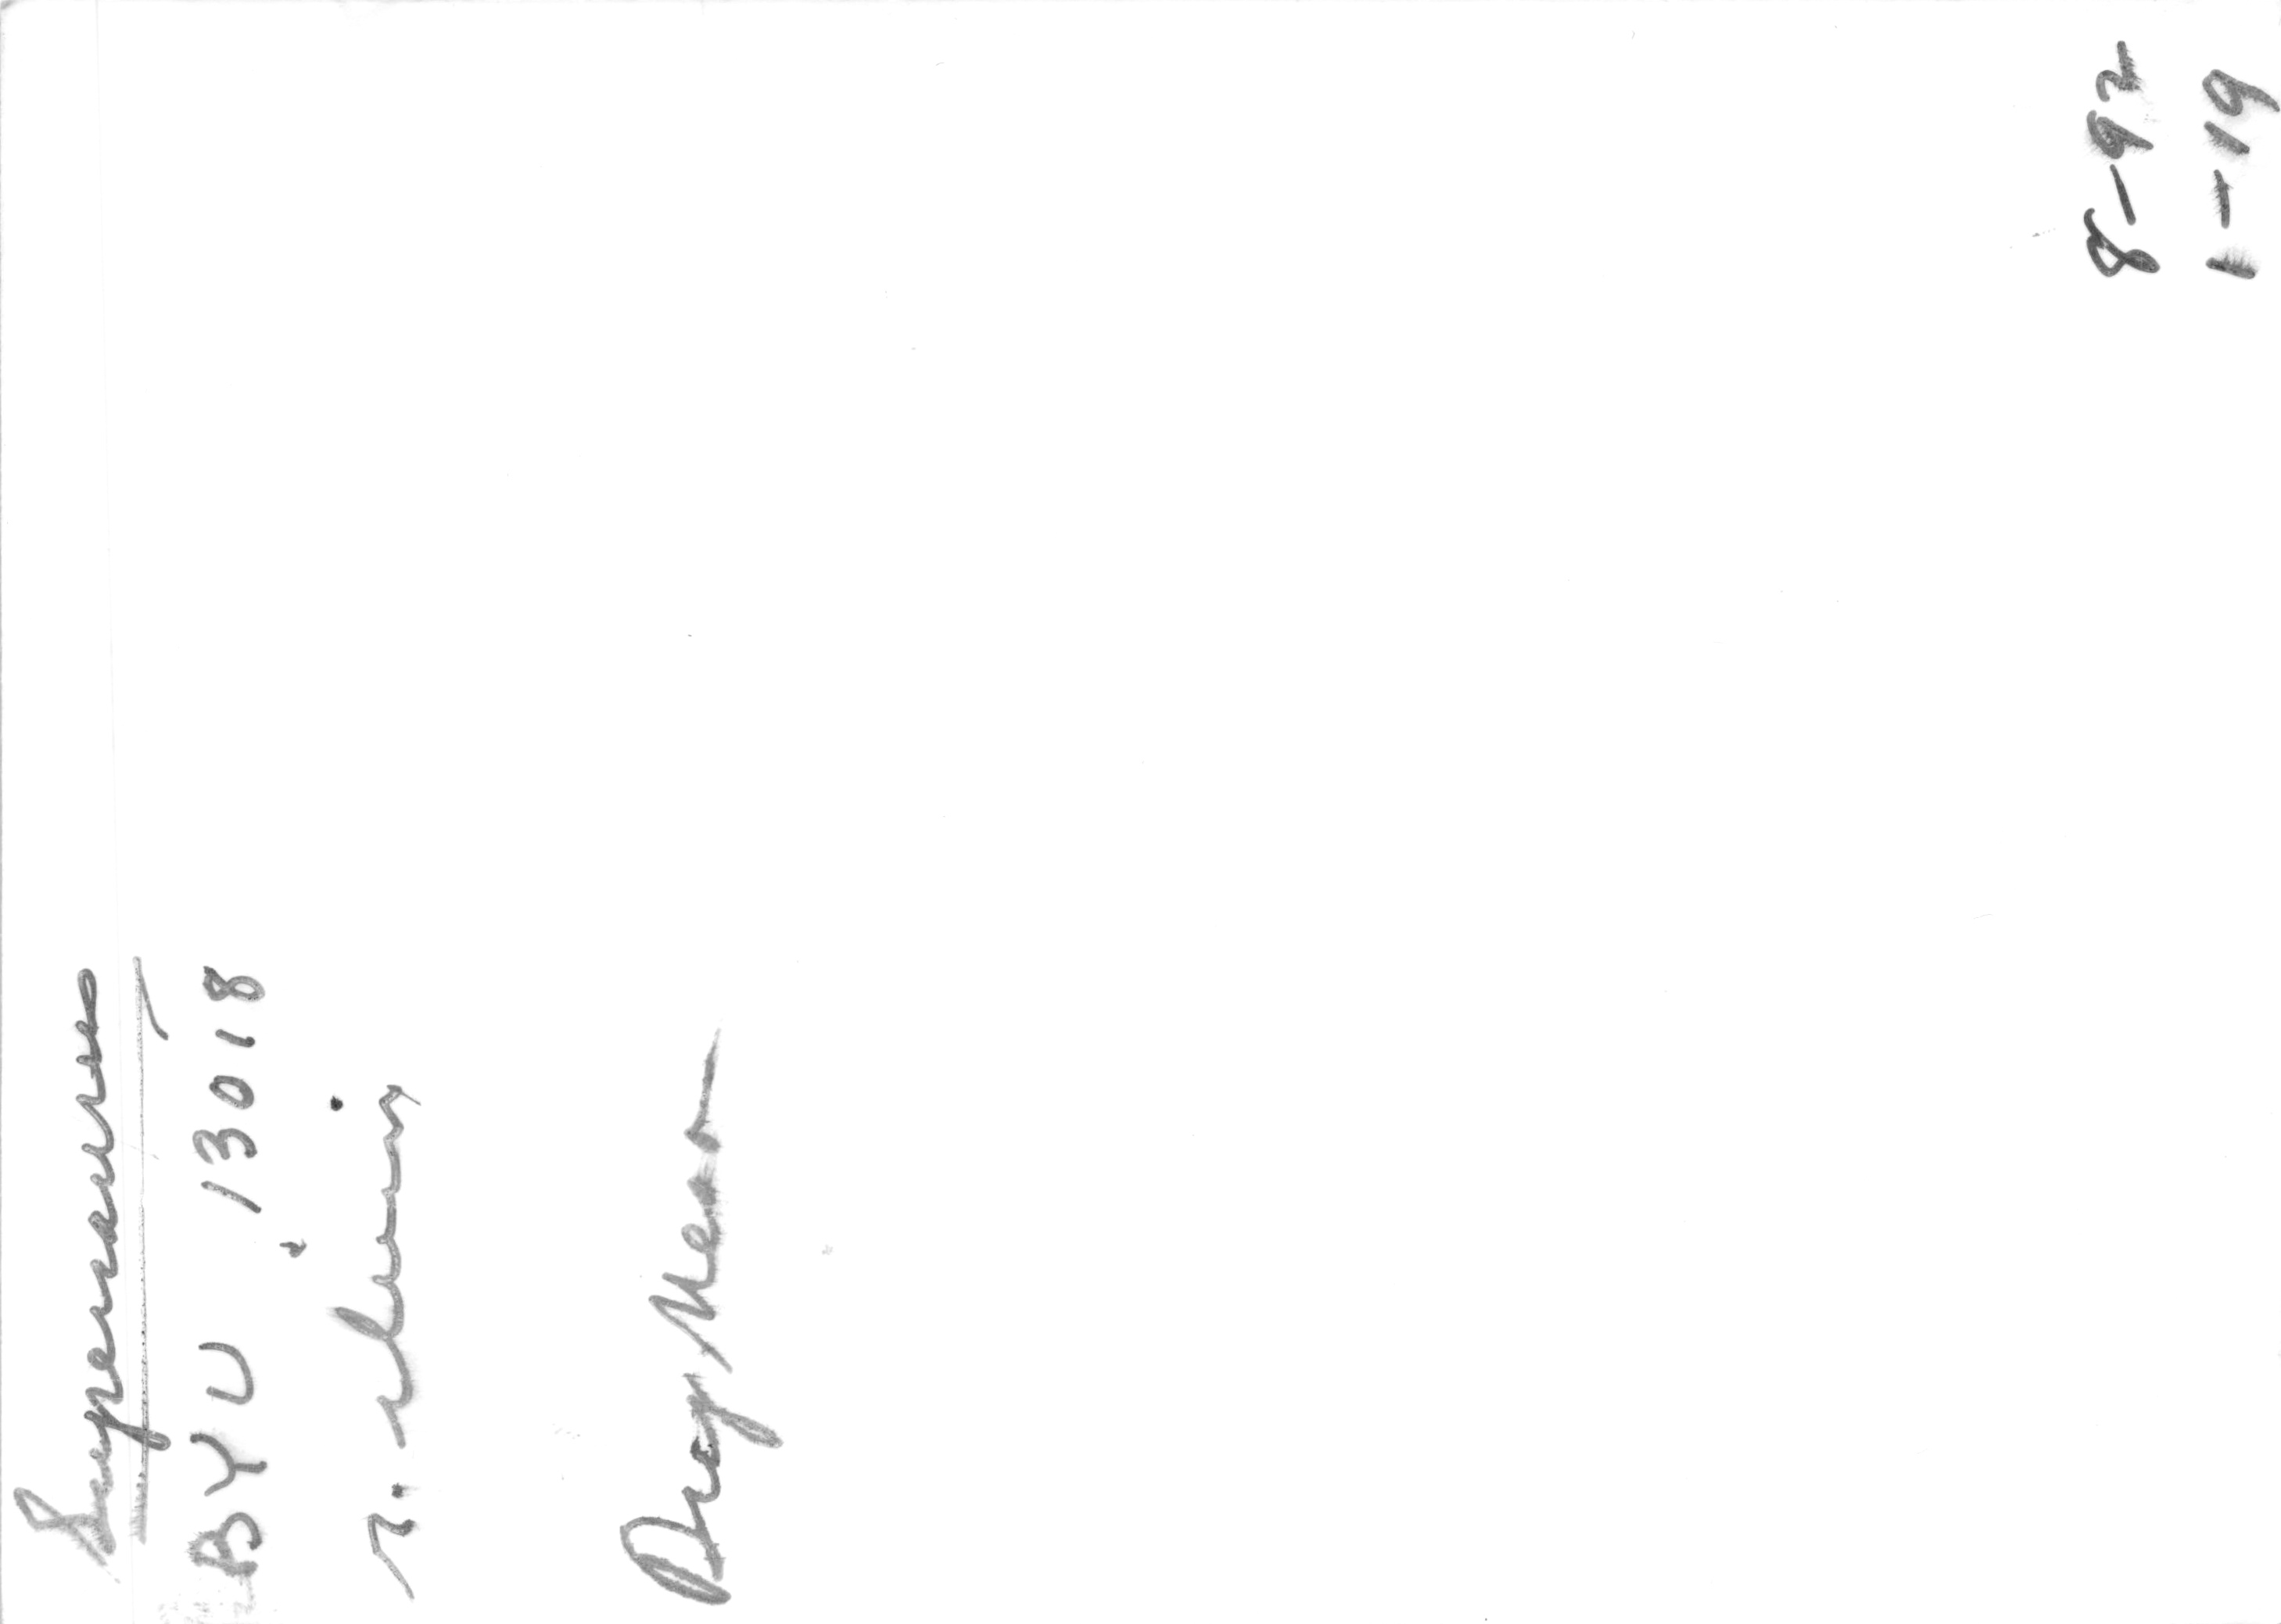 Supersaurus
BYU 13018
r. ilium
Dry Mesa
8-92
1-19